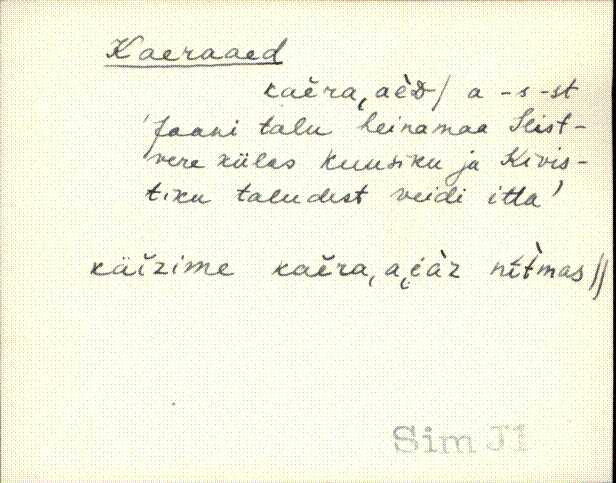 Kaeraaed
kaĕra, aèD/ a -s -st
'Jaani talu heinamaa Seist-
vere külas kuusiku ja Kivis-
tiku taludest veidi itta'
käĭzime kaĕra, a,iàz nĭt̀mas //
Sim J1